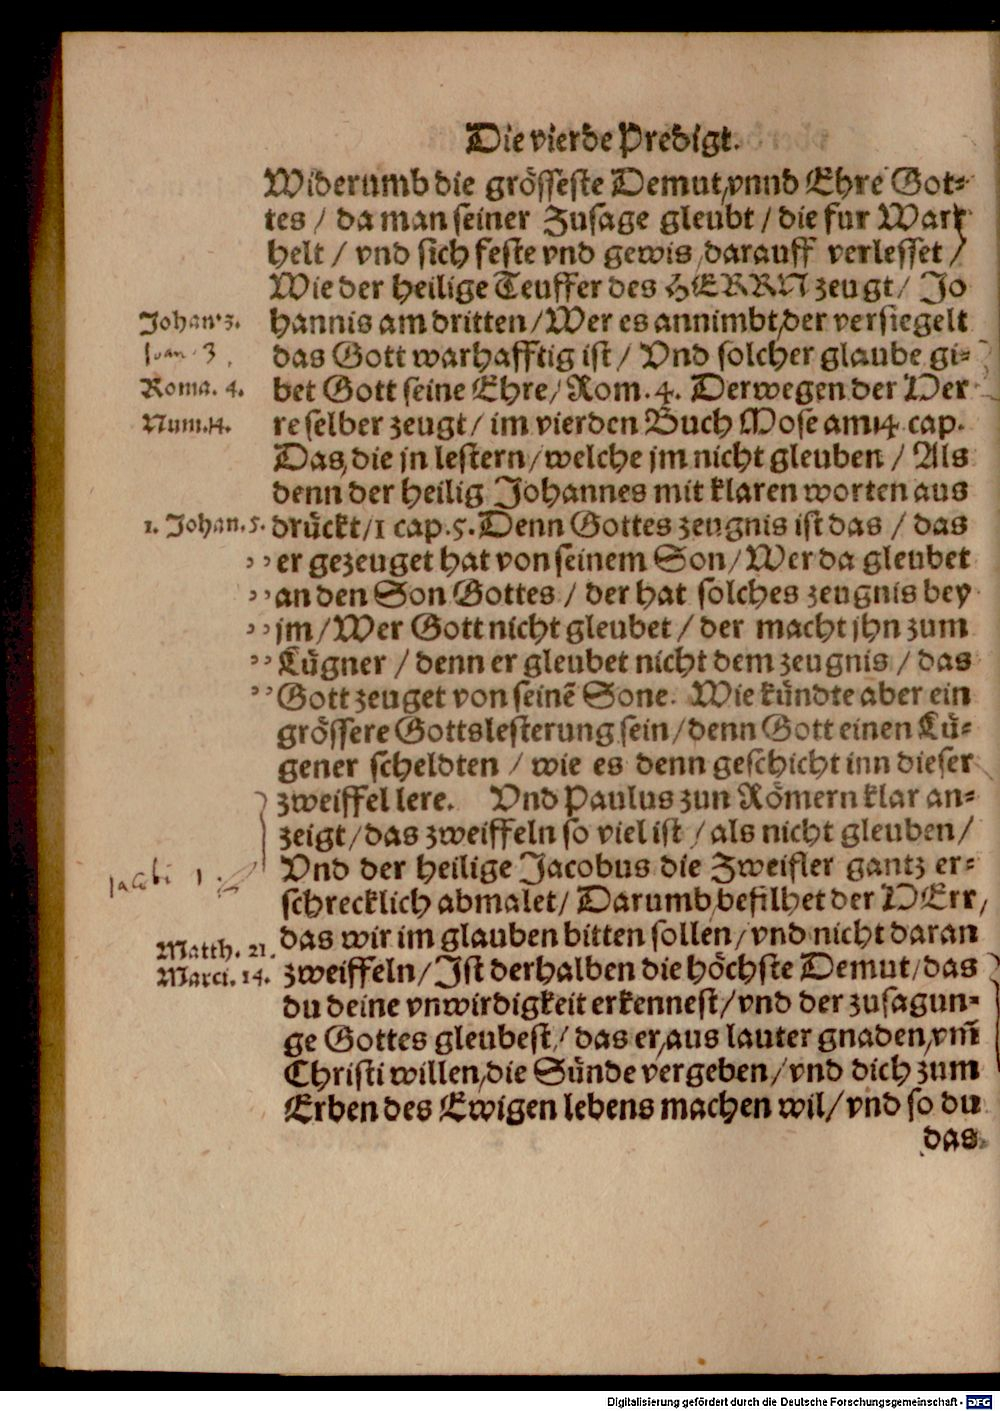 Die vierde Predigt.
Widerumb die grösseste Demut, vnnd Ehre Got⸗
tes / da man seiner Zusage gleubt / die fur War
helt / vnd sich feste vnd gewis darauff verlesset /
Wie der heilige Teuffer des HERRN zeugt / Jo
Johan. 3.
hannis am dritten / Wer es annimbt, der versiegelt
Joan 3
das Gott warhafftig ist / Vnd solcher glaube gi⸗
Roma. 4.
bet Gott seine Ehre / Rom. 4. Derwegen der HEr
Num. 14.
re selber zeugt / im vierden Buch Mose am 14. cap.
Das, die jn lestern / welche jm nicht gleuben / Als
denn der heilig Johannes mit klaren worten aus
1. Johan. 5.
drückt / 1 cap. 5. Denn Gottes zeugnis ist das / das
,, er gezeuget hat von seinem Son / Wer da gleubet
,, an den Son Gottes / der hat solches zeugnis bey
,, jm / Wer Gott nicht gleubet / der macht jhn zum
,, Lügner / denn er gleubet nicht dem zeugnis / das
,, Gott zeuget von seinē Sone. Wie kündte aber ein
grössere Gottslesterung sein / denn Gott einen Lü⸗
gener scheldten / wie es denn geschicht inn dieser
zweiffel lere. Vnd Paulus zun Römern klar an⸗
zeigt / das zweiffeln so viel ist / als nicht gleuben /
Vnd der heilige Jacobus die Zweifler gantz er⸗
Jacobi 1.
schrecklich abmalet / Darumb, befilhet der HErr,
Matth. 21.
das wir im glauben bitten sollen / vnd nicht daran
Marci. 14.
zweiffeln / Jst derhalben die höchste Demut / das
du deine vnwirdigkeit erkennest / vnd der zusagun⸗
ge Gottes gleubest / das er, aus lauter gnaden, vm̄
Christi willen, die Sünde vergeben / vnd dich zum
Erben des Ewigen lebens machen wil / vnd so du
das
Digitalisierung gefördert durch die Deutsche Forschungsgemeinschaft - DFG